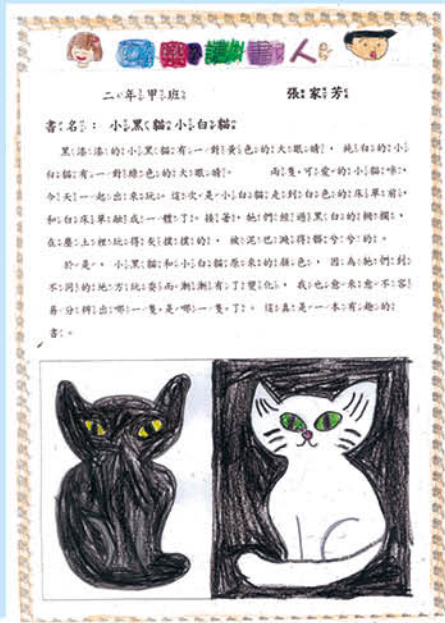 可樂讀書人
二年甲班 張家芳
書名：小黑貓小白貓
黑漆漆的小黑貓有一對黃色的大眼睛，純白的小
白貓有一對綠色的大眼睛。 兩隻可愛的小貓咪，
今天一起出來玩。這次是小白貓走到白色的床單前，
和白床單融成一體了。接著，牠們經過黑白的柵欄，
在塵土裡玩得灰撲撲的，被泥巴濺得髒兮兮的。
於是，小黑貓和小白貓原來的顏色，因為牠們到
不同的地方玩耍而漸漸有了變化，我也愈來愈不容
易分辨出哪一隻是哪一隻了。這真是一本有趣的
書。